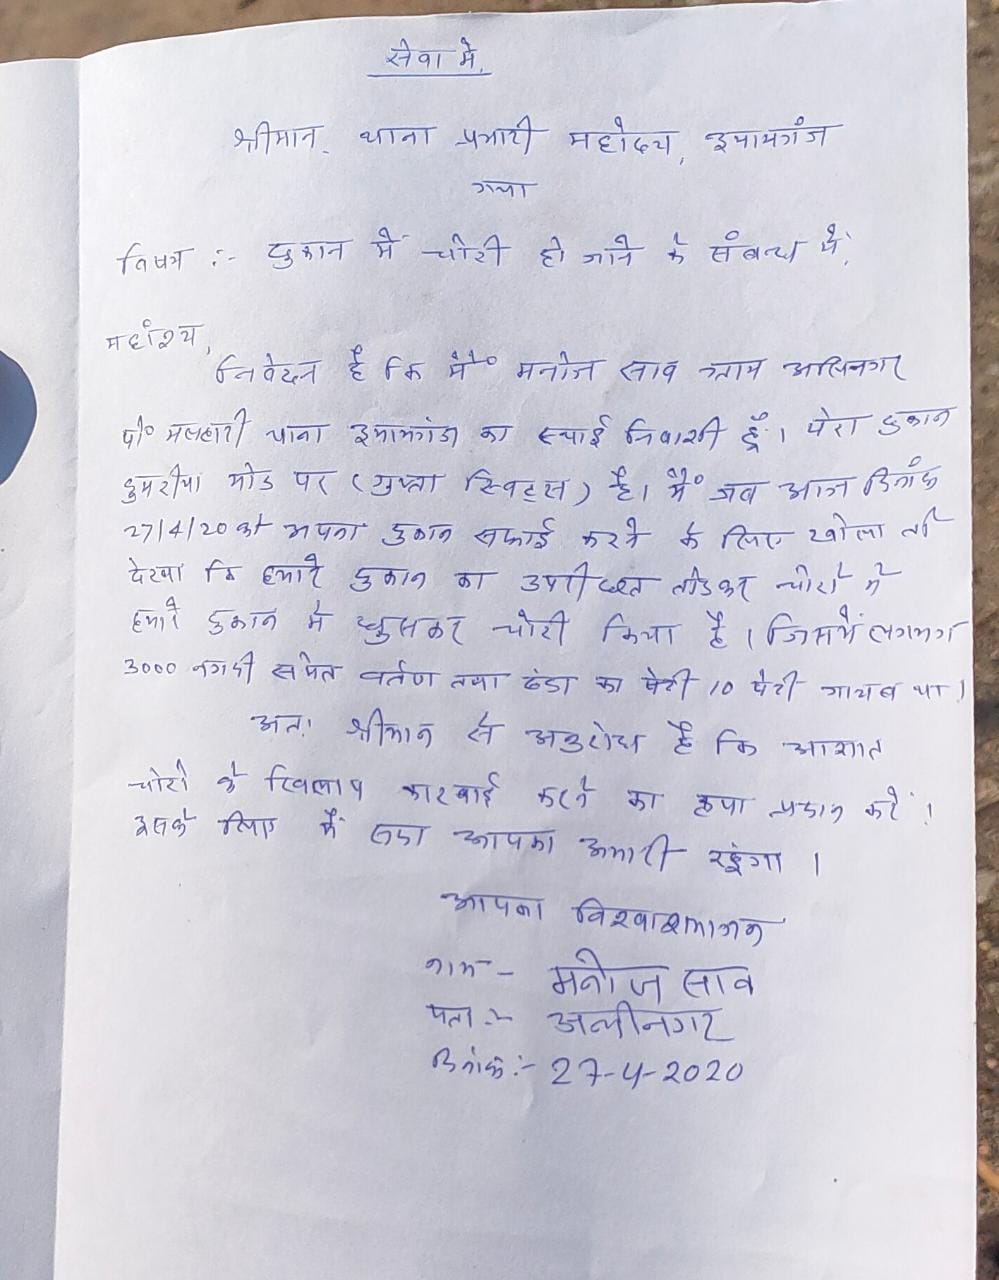 सेवा में,
श्रीमान, थाना प्रभारी महोदय, इमामगंज
गया
विषय :- दुकान में चोरी हो जाने के संबन्ध में,
महाशय,
निवेदन है कि मैं मनोज साव ग्राम अलिनगर
पो० मलहारी थाना इमामगंज का स्थाई निवाशी हूँ। मेरा दुकान
डुमरीया मोड पर (गुप्ता स्विट्स) है। मैं जब आज दिनांक
27/4/20 को अपना दुकान सफाई करने के लिए खोला तो
देखा कि हमारे दुकान का उपरी छत तोडकर चोरो ने
हमारे दुकान में घुसकर चोरी किया है। जिसमें लगभग
3000 नगदी समेत वर्तण तथा ठंडा का पेटी 10 पेटी गायब था।
अतः श्रीमान से अनुरोध है कि अज्ञात
चोरो के खिलाप कारवाई करने का कृपा प्रदान करें।
इसके लिए मैं सदा आपका अभारी रहूंगा ।
आपका विश्वाशभाजन
नाम - मनोज साव
पता :- अलीनगर
दिनांक :- 27-4-2020